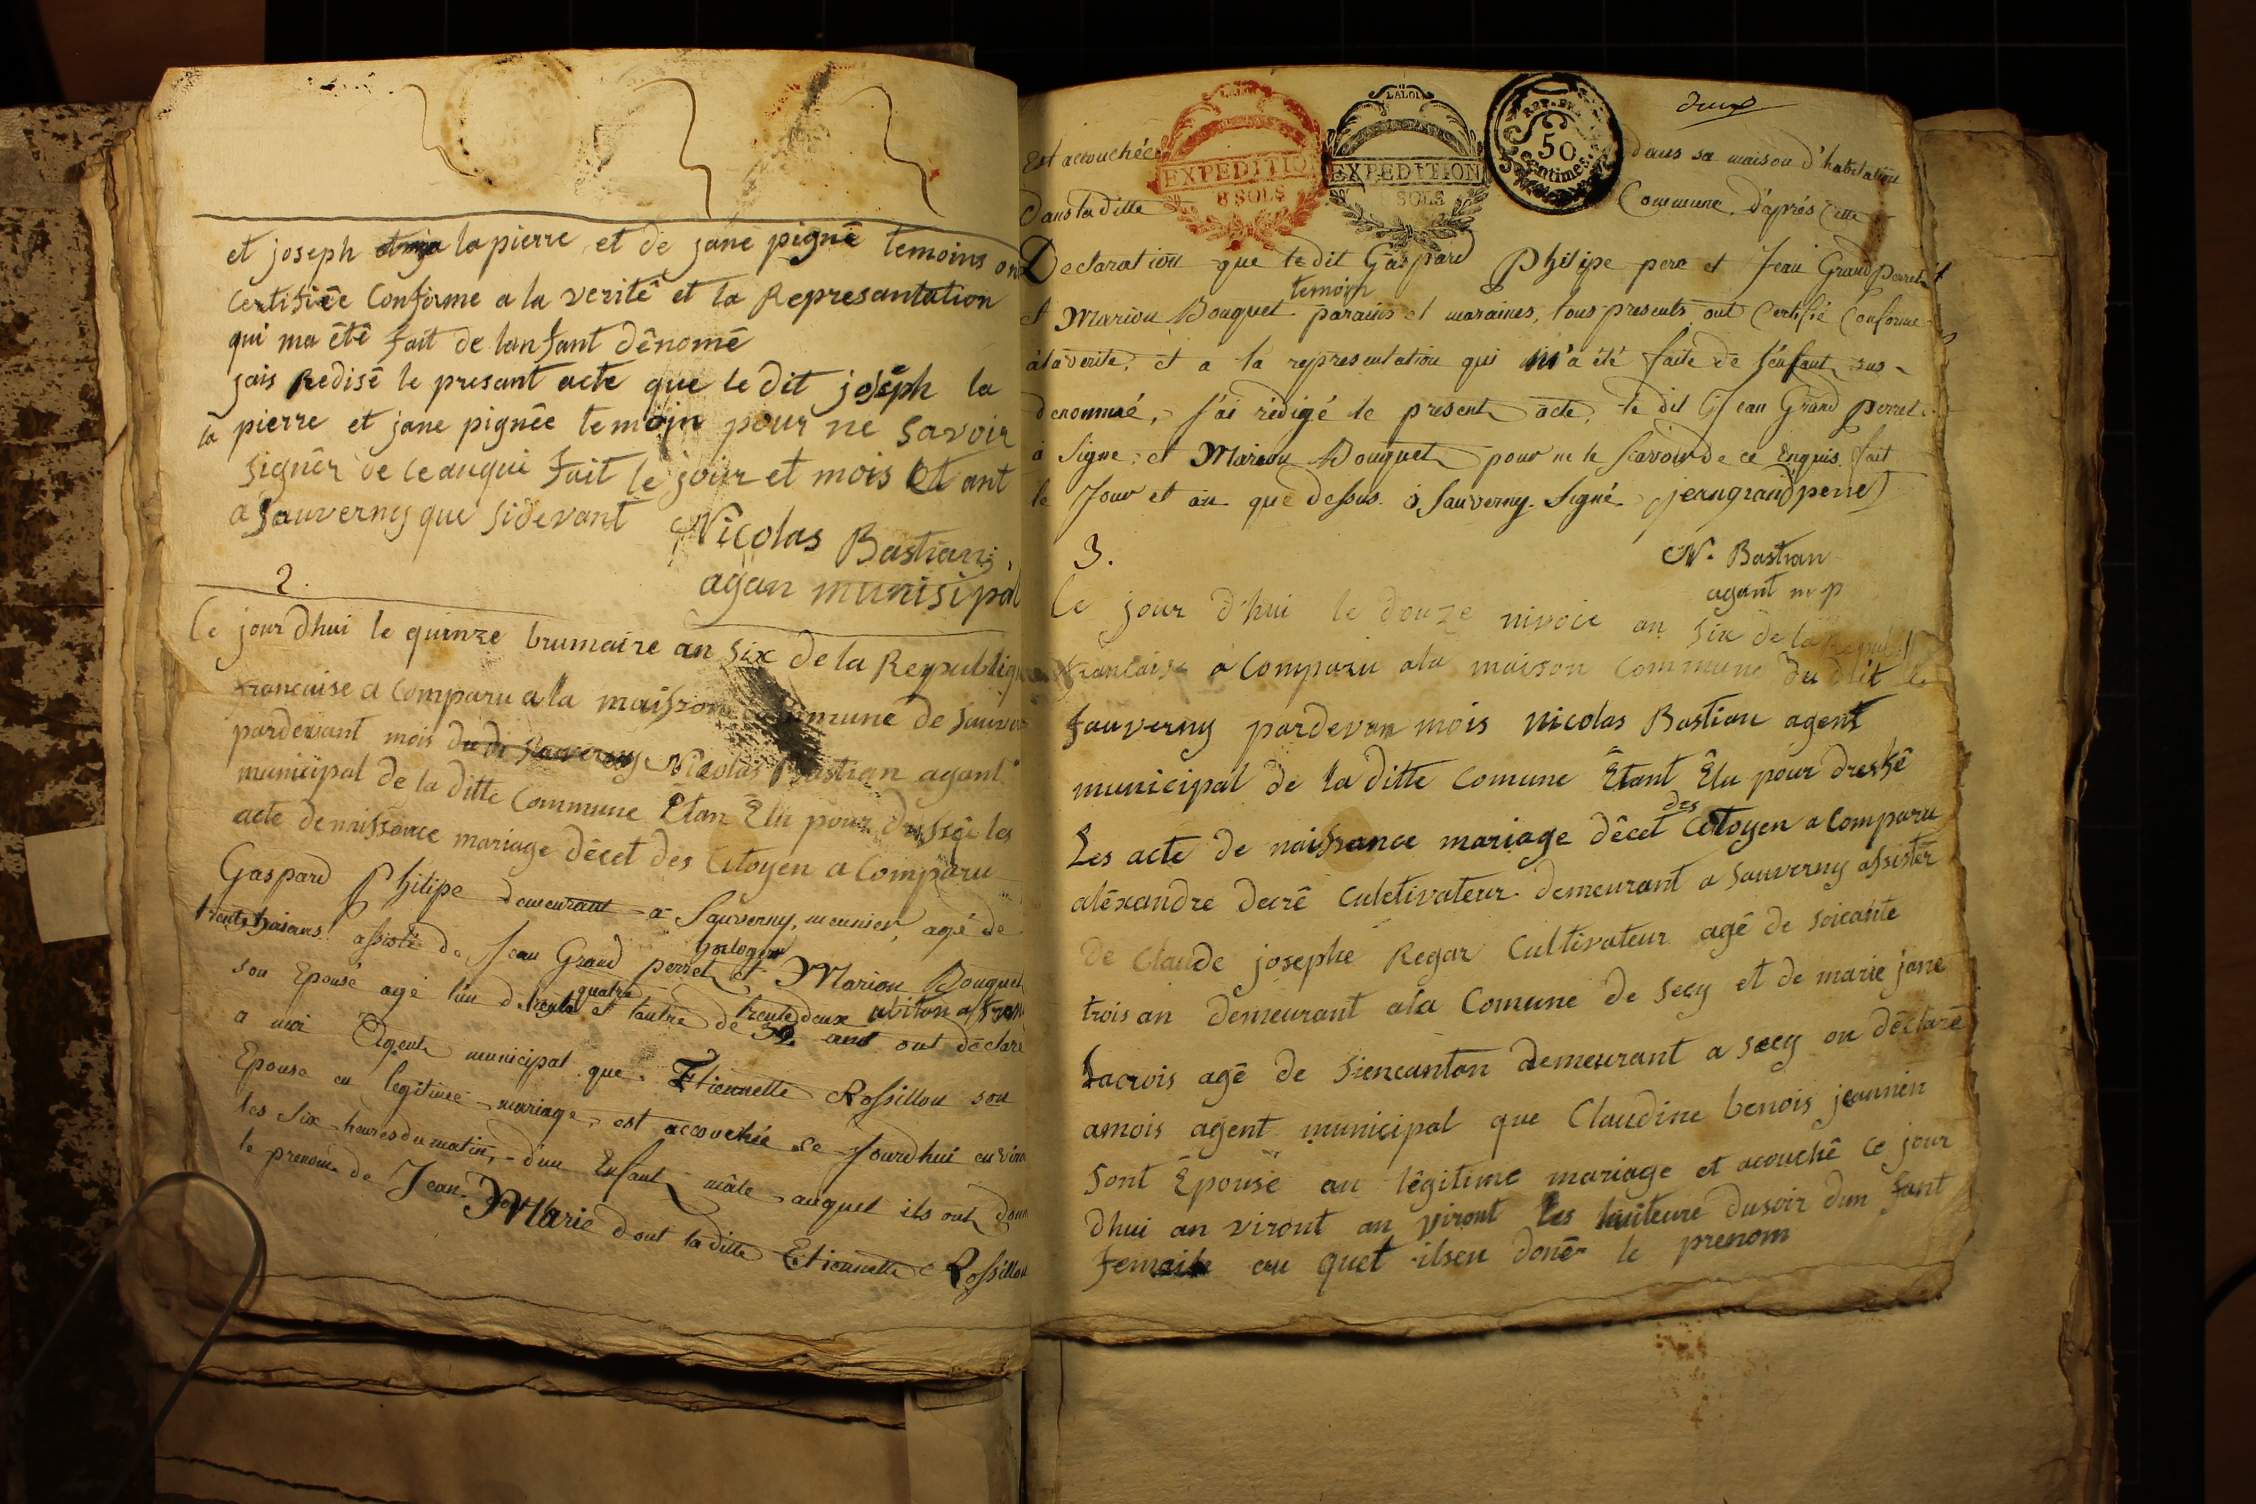 et joseph la pierre et de jane pignê temoins on
certifiêe Conforme a la veritê et la Represantation
qui ma êtê fait de lanfant dênomê
jais Redisê le presant acte que le dit joseph la
la pierre et jane pignêe temoin pour ne savoir
signêr de ceanqui fait le jour et mois Et ant
a Sauverny que sidevant
Nicolas Bastian
agan munisipal
2.
Ce jourdhui le quinze brumaire an six de la Republiq
francaise a Comparu a la maison Commune de Sauver
pardevant mois du di Sauverny Nicolas Bastian agant
municipal de la ditte Commune Êtan Êlu pour Dressêe les
acte denaissance mariage dêcet des Citoyen a Comparu
Gaspard Philipe demeurant a Sauverny, meunier, agé de
trente trois ans assisté de Jean Grand perret horloger et Marion Bouquet
son Epouse agé l'un de trente quatre et l'autre de trente deux ans ont déclaré
a moi Agent municipal que Etiennette Rossillon son
Epouse en legitime mariage, est accouchée ce Jourdhui environ
les six heures du matin, d'un Enfant mâle auquel ils ont donn
le prenom de Jean-Marie dont la ditte Etiennette Rossillon
deux
LA LOI
EXPEDITION
8 SOLS
LA LOI
EXPEDITION
SOLS
REP. FRA
50
centimes
Est accouchée dans sa maison d'habitation
dans la ditte Commune, d'après Cette
Declaration que ledit Gaspard Philipe pere et Jean Grand perret
et Marion Bouquet temoin parains et maraines, tous presents ont Certifié Conforme
à la verite, et a la representation qui m'a été faite de l'enfant sus-
denommé, J'ai rédigé le present acte, le dit Jean Grand perret
a signe; et Marion Bouquet pour ne le scavoir de ce Enquis fait
le Jour et an que dessus. à Sauverny. Signé jeangrandperret
N. Bastian
agant m p
3.
Ce jour d'hui le douze nivoce an six de la Republ
francaise a Comparu ala maison Commune du dit
Sauverny pardevan mois Nicolas Bastian agent
municipal de la ditte Comune Êtant Êlu pour dressê
Les acte de naissance mariage dêcet des Citoyen a Comparu
alêxandre decrê Culetivateur demeurant a Sauverny assistêr
De Claude josephe Regar Cultivateur agê de soicante
trois an demeurant ala Comune de Secy et de marie jane
Lacrois agê de siencantan demeurant a secy on dêclarê
amois agent municipal que Claudine benois jeannin
sont Êpousê au lêgitime mariage et acouchê ce jour
dhui an viront an viront les huiteure dusoir dun fant
femaile au quel ilsen donêr le prenom